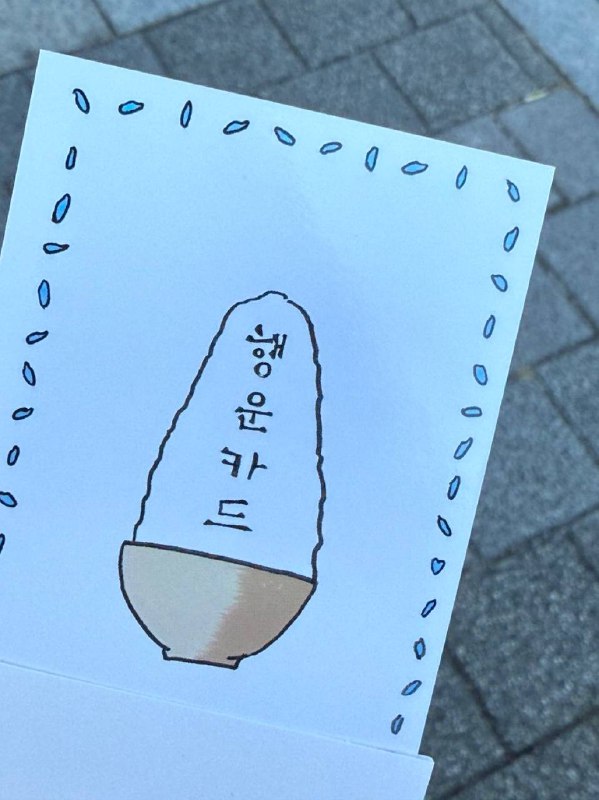 행운카드